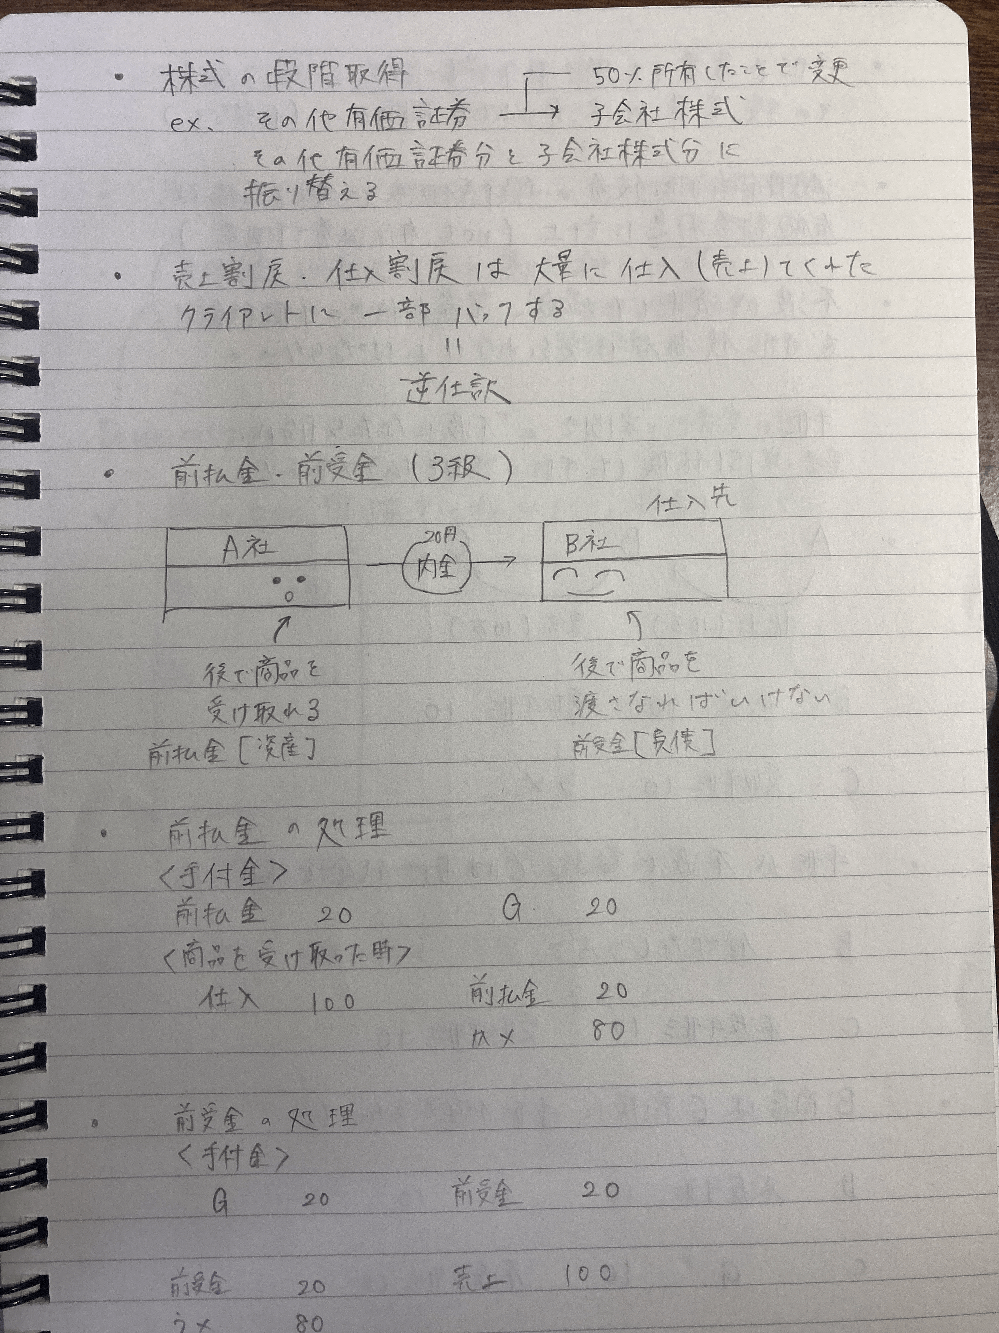 ・株式の段階取得
50%所有したことで変更
ex. その他有価証券 → 子会社株式
その他有価証券分を子会社株式分に
振り替える
・売上割戻・仕入割戻は大量に仕入(売上)てくれた
クライアントに一部バックする
=
逆仕訳
・前払金・前受金(3級)
仕入先
A社 20円 内金 → B社
後で商品を
受け取れる
前払金[資産]
後で商品を
渡さなればいけない
前受金[負債]
・前払金の処理
<手付金>
前払金 20 G 20
<商品を受け取った時>
仕入 100 前払金 20
カメ 80
・前受金の処理
<手付金>
G 20 前受金 20
前受金 20 売上 100
うメ 80